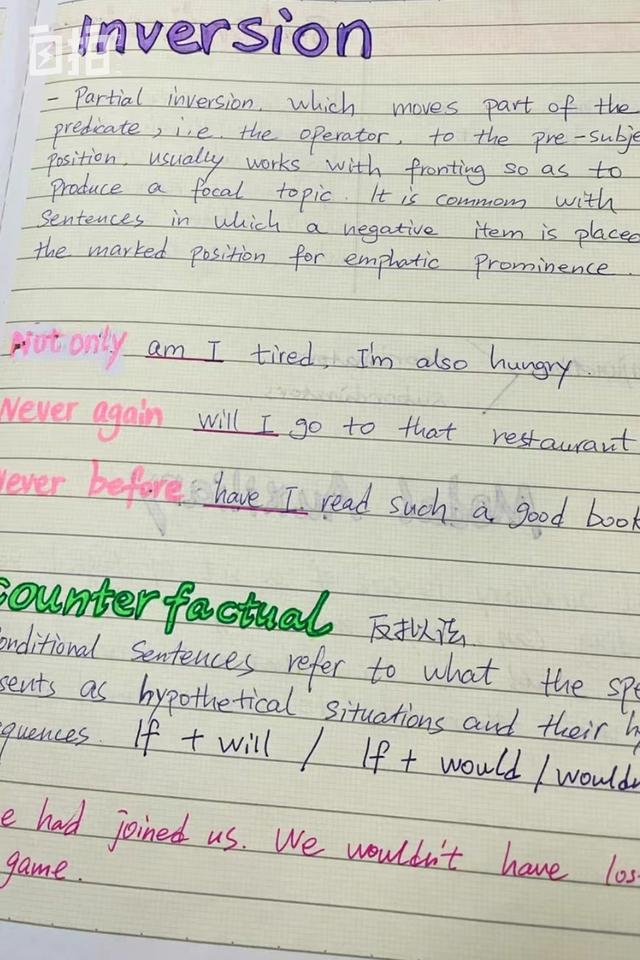 Inversion
- Partial inversion, which moves part of the
predicate, i.e. the operator, to the pre-subje
position, usually works with fronting so as to
produce a focal topic. It is commom with
sentences in which a negative item is placed
the marked position for emphatic prominence.
Not only am I tired, I'm also hungry.
Never again will I go to that restaurant
Never before have I read such a good book
counterfactual 反拟以法
onditional sentences refer to what the spe
sents as hypothetical situations and their h
quences. If + will / If + would / wouldn
e had joined us. We wouldn't have los
game.